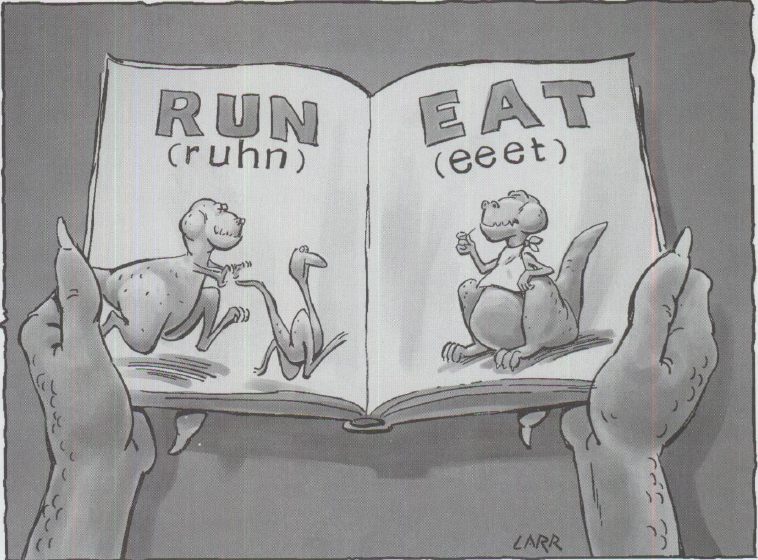 RUN
(ruhn)
EAT
(eeet)
LARR